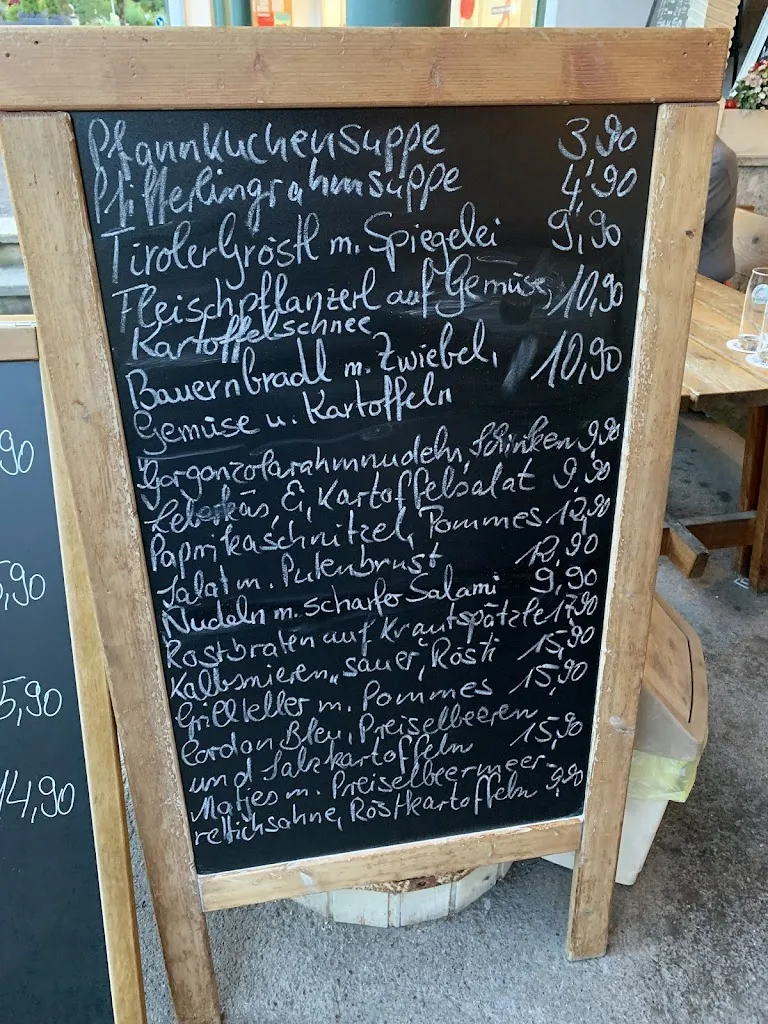 Pfannkuchensuppe 3,90
Pfifferlingrahmsuppe 4,90
Tiroler Gröstl m. Spiegelei 9,90
Fleischpflanzerl auf Gemüse, 10,90
Kartoffelschnee
Bauernbradl m. Zwiebel, 10,90
Gemüse u. Kartoffeln
Gorgonzolarahmnudeln, Schinken 9,90
Leberkäs, Ei, Kartoffelsalat 9,90
Paprikaschnitzel, Pommes 12,90
Salat m. Putenbrust 12,90
Nudeln m. scharfer Salami 9,90
Rostbraten auf Krautspätzle 17,90
Kalbsnieren "sauer, Rösti 15,90
Grillteller m. Pommes 15,90
Cordon Bleu, Preiselbeeren
und Salzkartoffeln 15,90
Matjes m. Preiselbeermeer-
rettichsahne, Röstkartoffeln 9,90
90
5,90
5,90
14,90